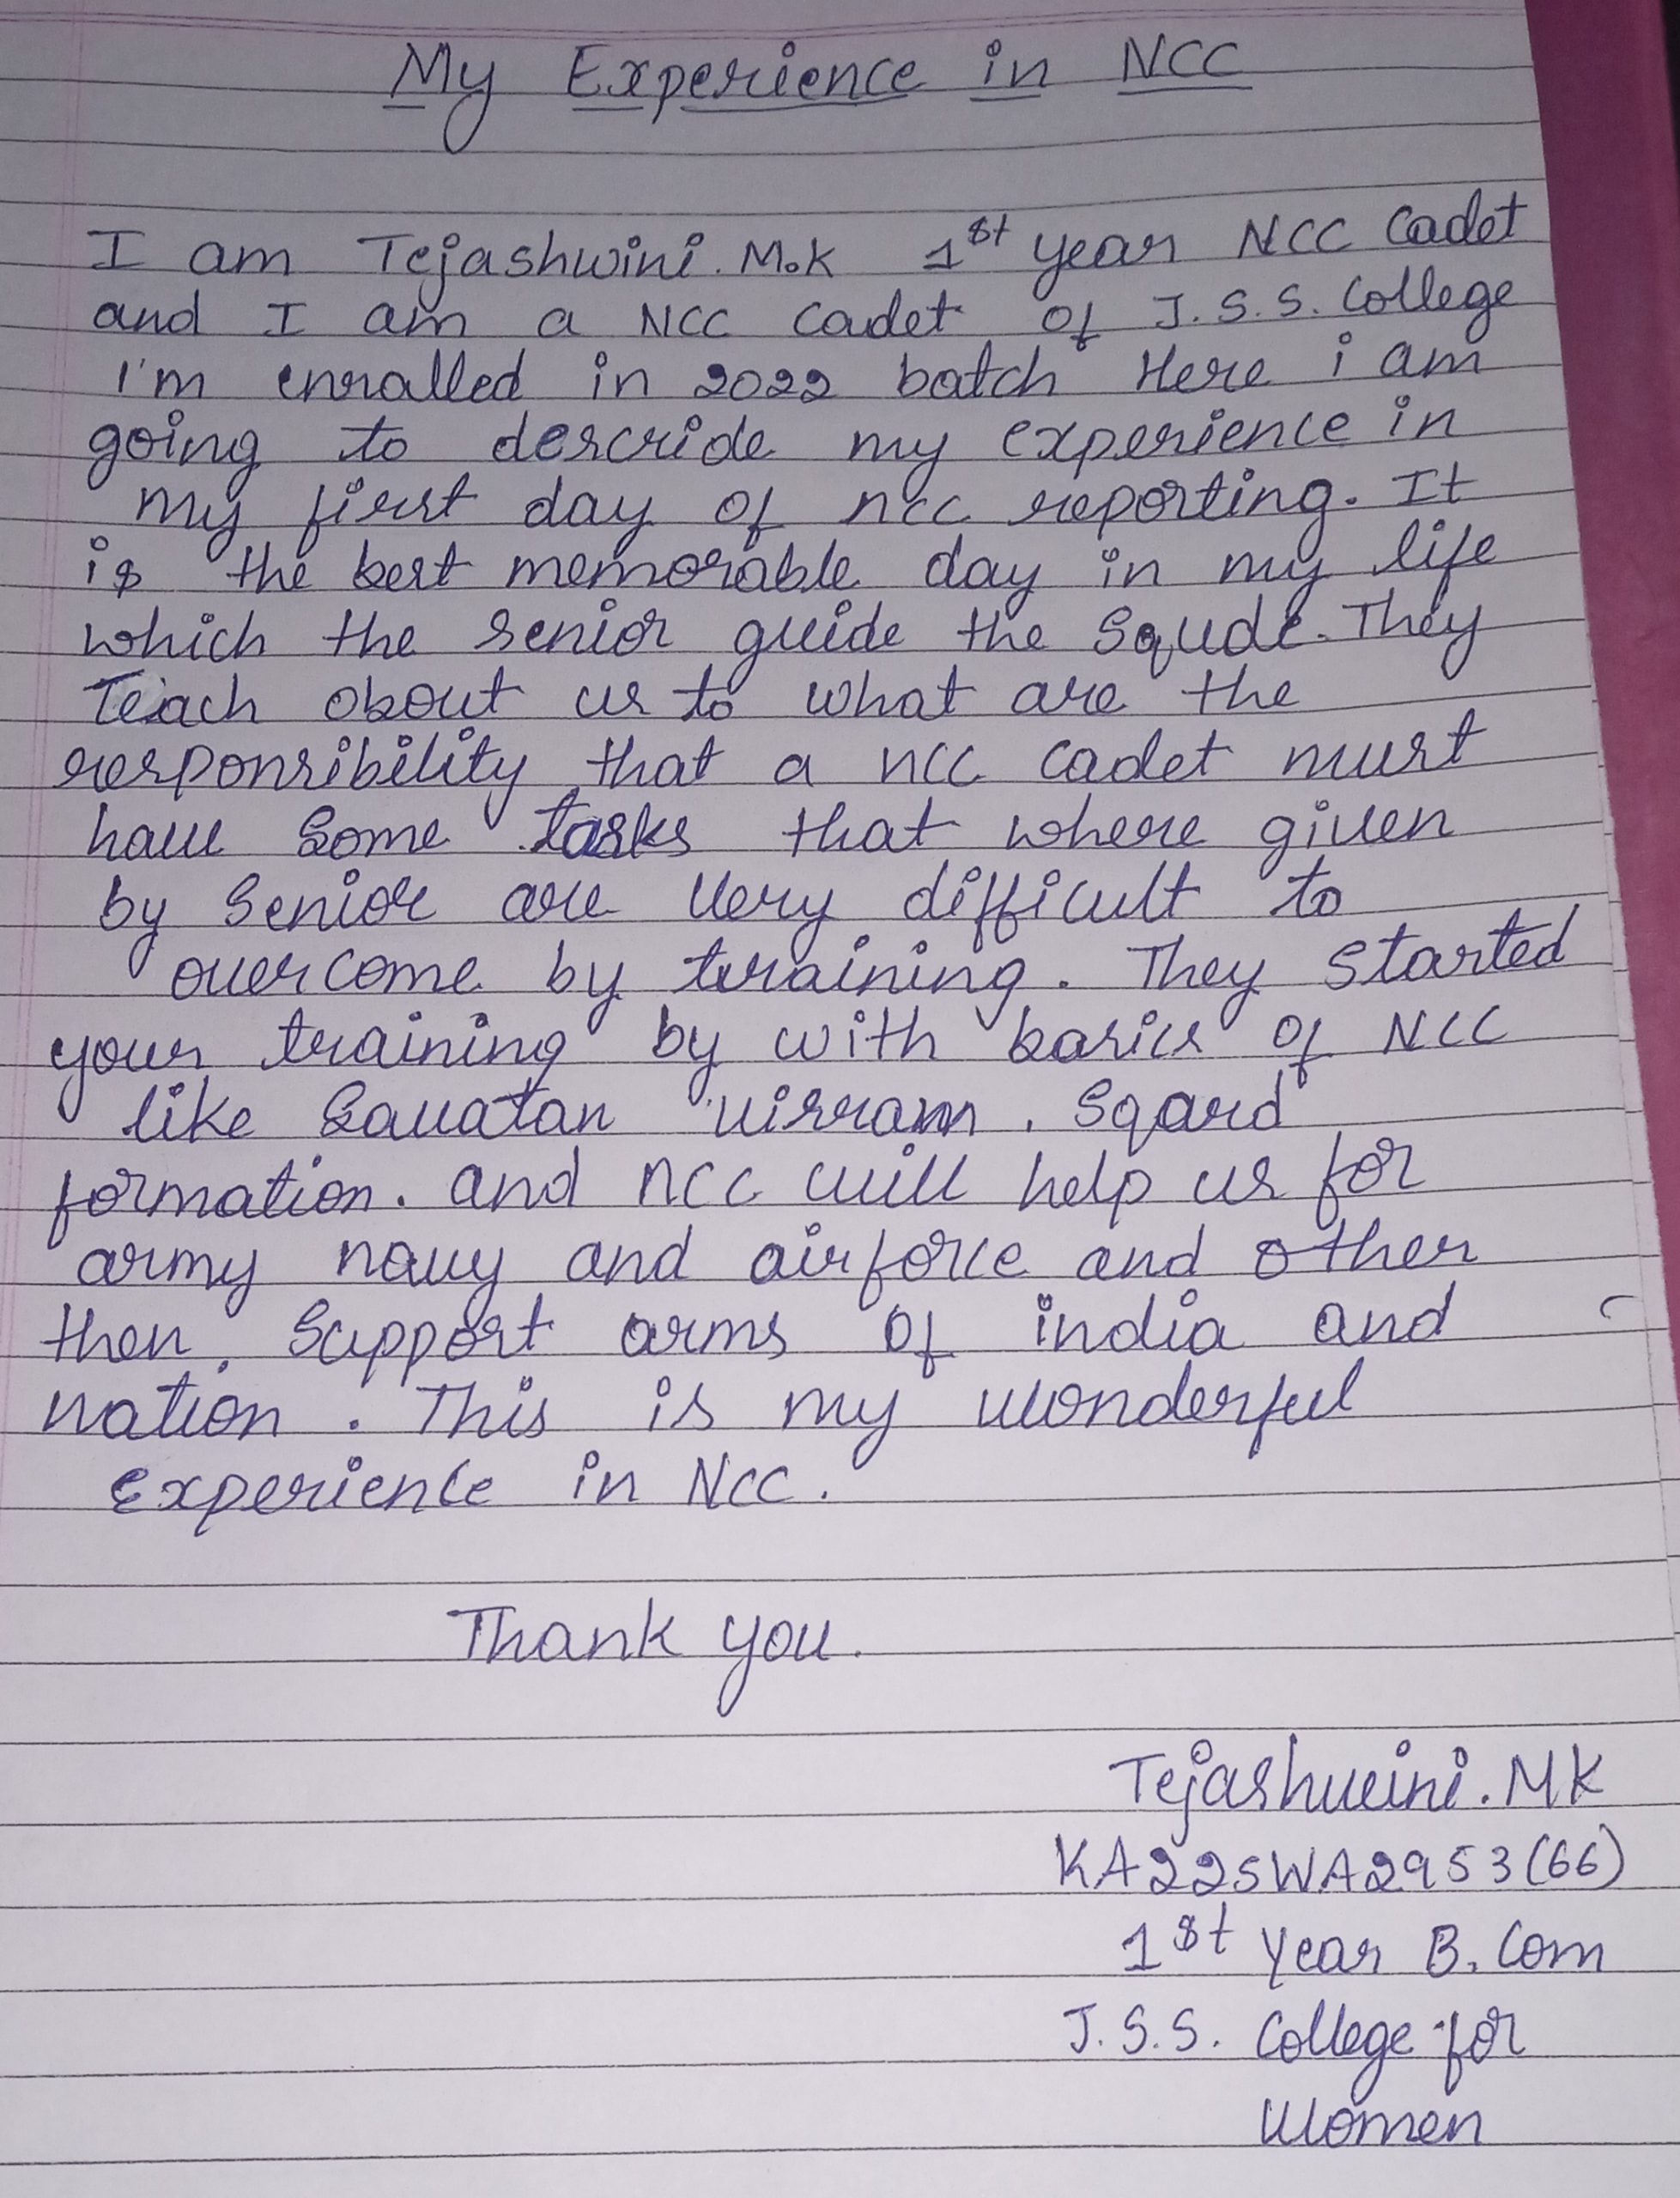 My Experience in NCC
I am Tejashwini. M.K 1st year NCC Cadet
and I am a NCC Cadet of J.S.S. College
I'm enralled in 2022 batch Here i am
going to descride my experience in
my first day of ncc reporting. It
is the best memorable day in my life
which the senior guide the Squde. They
Teach about us to what are the
responsibility that a ncc cadet must
have Some tasks that where given
by Senior are Very difficult to
overcome by training. They started
your training by with basics of NCC
like Savatan visram. Sqard
formation. and ncc will help us for
army navy and airforce and other
then. Support arms of india and
nation. This is my wonderful
experience in NCC.
Thank you.
Tejashwini. MK
KA22SWA2953(66)
1st year B. Com
J.S.S. College for
Women